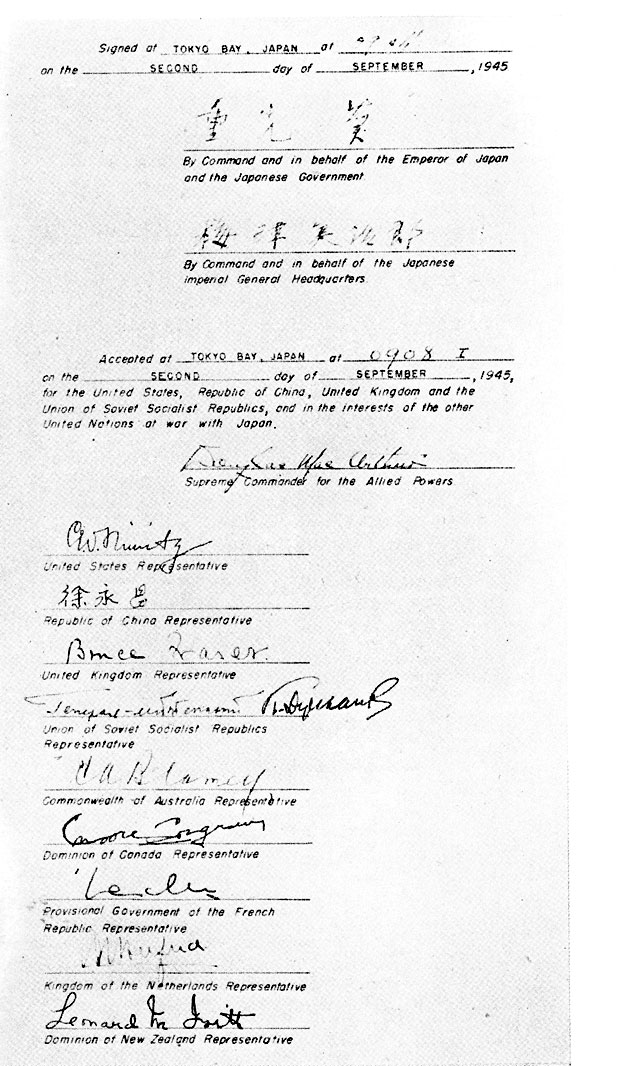 Signed at TOKYO BAY, JAPAN at
on the SECOND day of SEPTEMBER, 1945
重光 葵
By Command and in behalf of the Emperor of Japan
and the Japanese Government.
梅津美治郎
By Command and in behalf of the Japanese
Imperial General Headquarters.
Accepted at TOKYO BAY, JAPAN at 0908 I
on the SECOND day of SEPTEMBER, 1945,
for the United States, Republic of China, United Kingdom and the
Union of Soviet Socialist Republics, and in the interests of the other
United Nations at war with Japan.
Douglas MacArthur
Supreme Commander for the Allied Powers
C.W. Nimitz
United States Representative
徐永昌
Republic of China Representative
Bruce Fraser
United Kingdom Representative
Генерал-лейтенант К. Деревянко
Union of Soviet Socialist Republics
Representative
T A Blamey
Commonwealth of Australia Representative
Moore Cosgrave
Dominion of Canada Representative
Leclerc
Provisional Government of the French
Republic Representative
Kingdom of the Netherlands Representative
Leonard M Isitt
Dominion of New Zealand Representative